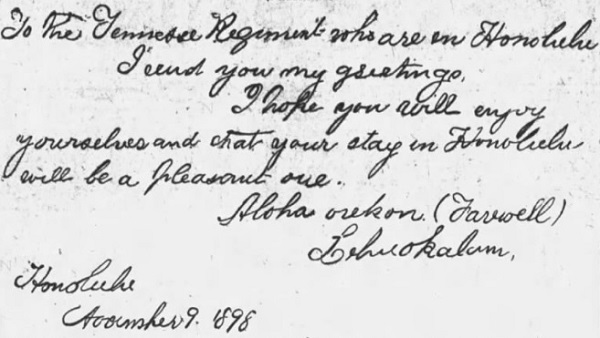 To the Tennessee Regiment who are in Honolulu
I send you my greetings.
I hope you will enjoy
yourselves and that your stay in Honolulu
will be a pleasant one.
Aloha (Farwell)
Honolulu
9. 1898